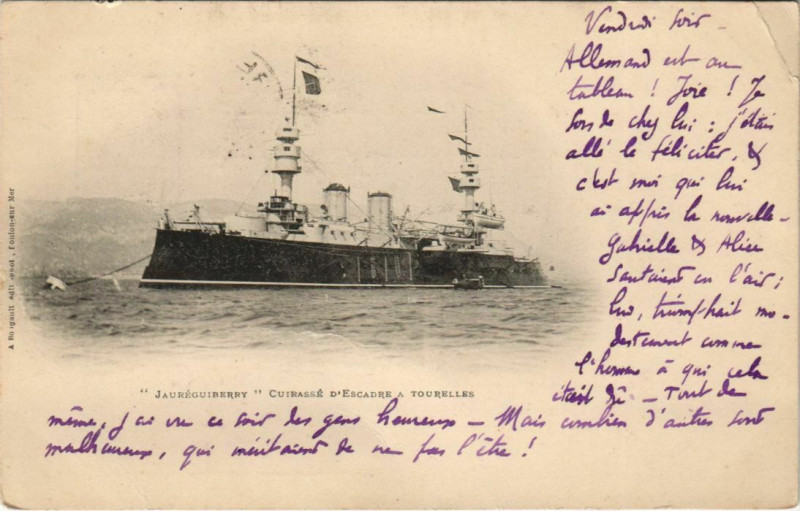 Vendredi soir -
Allemand est au
tableau ! Joie ! Je
sors de chez lui ; j'étais
allé le féliciter, &
c'est moi qui lui
ai appris la nouvelle -
Gabrielle & Alice
sautaient en l'air ;
lui, triomphait mo-
destement comme
l'homme à qui cela
était dû - Tout de
même, j'ai vu ce soir des gens heureux - Mais combien d'autres sont
malheureux, qui méritaient de ne pas l'être !
" JAURÉGUIBERRY " CUIRASSÉ D'ESCADRE A TOURELLES
A Bougault, Toulon-sur Mer